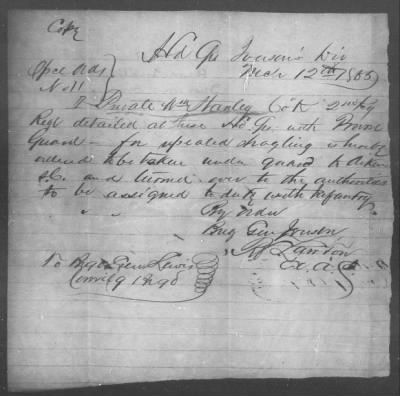 Copy
Hd Qrs Iverson's Div
Mch 12th 1865
Specl Ords
No 11
I Private Wm Hanley Co K 2nd Ky
Regt detailed at these Hd Qrs with Provo
Guard for repeated stragling is hereby
ordered to be taken under guard to Aiken
S.C. and turned over to the authorities
to be assigned to duty with Infantry
" "
By order
Brig Gen Iverson
Lawton
A. A. G
To Brig Genl Lewis
comdg